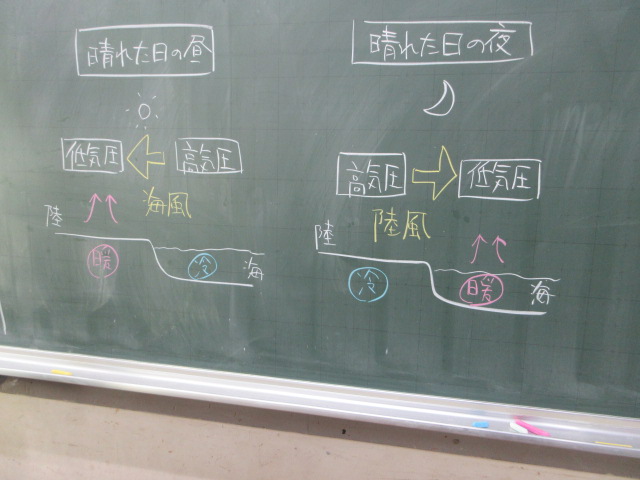 晴れた日の昼
低気圧
高気圧
海風
陸
暖
冷
海
晴れた日の夜
高気圧
低気圧
陸風
陸
冷
暖
海